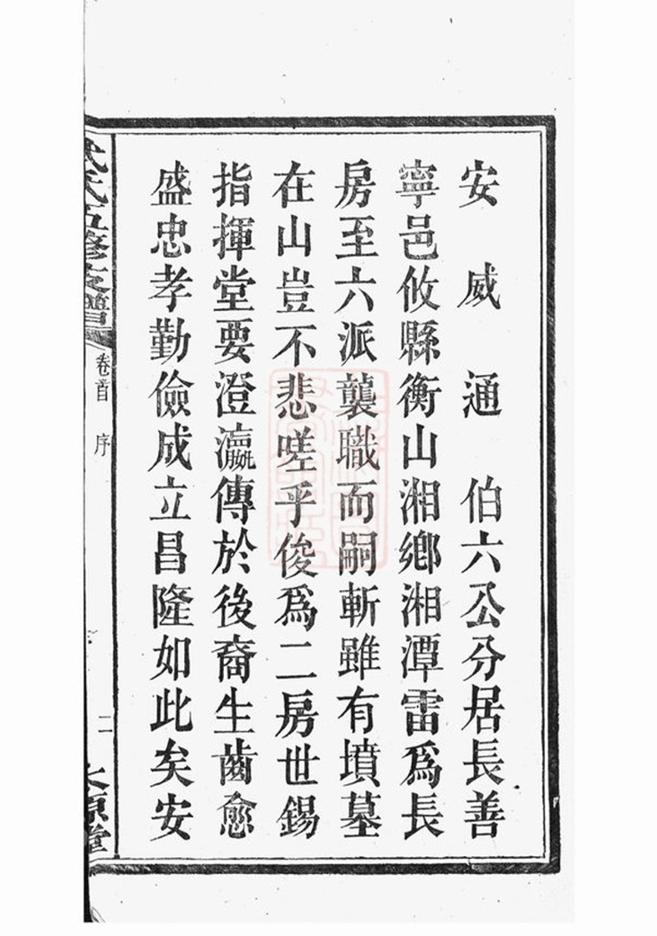 安威通伯六公分居長善
寧邑攸縣衡山湘鄉湘潭雷爲長
房至六派襲職而嗣斬雖有墳墓
在山豈不悲嗟乎俊爲二房世錫
指揮堂要澄瀛傳於後裔生齒愈
盛忠孝勤儉成立昌隆如此矣安
氏五修支譜
卷首 序
二
原堂